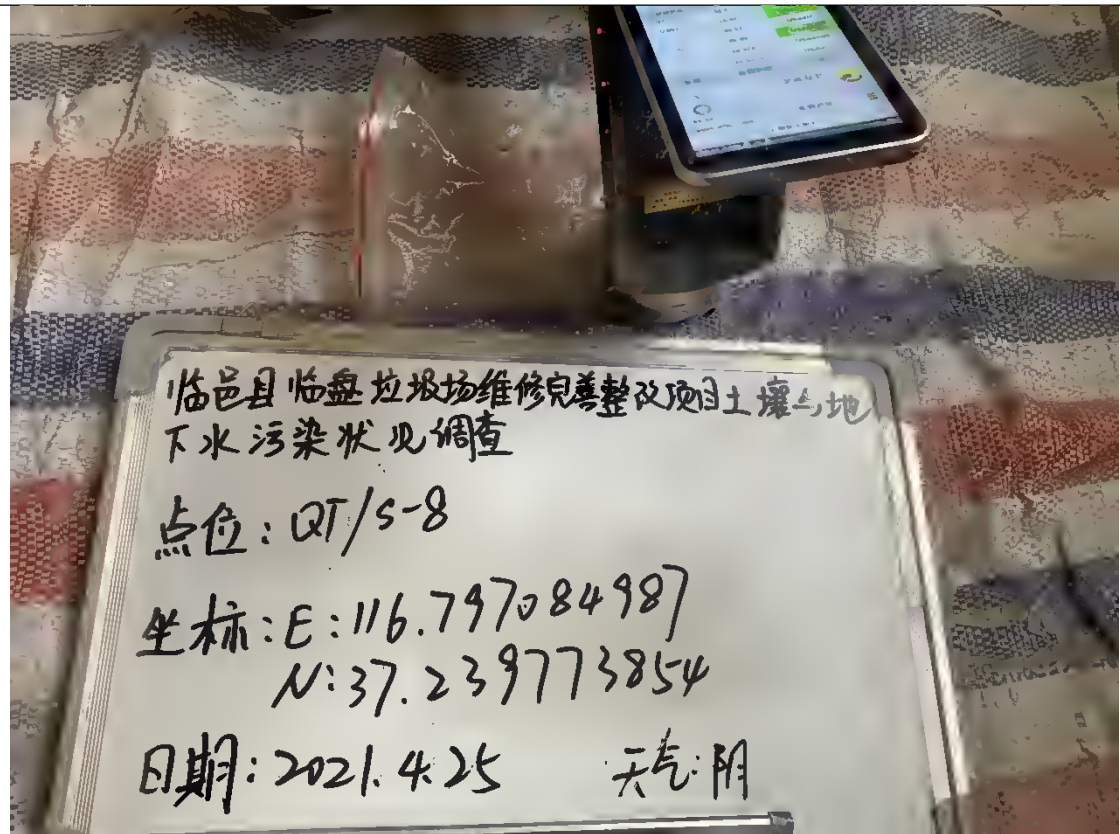 临邑县临盘垃圾场维修完善整改项目土壤与地
下水污染状况调查
点位:QT/S-8
坐标:E:116.797084987
N:37.239773854
日期:2021.4.25 天气:阴